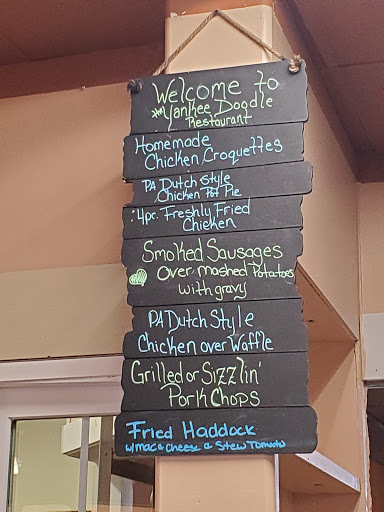 Welcome to
the Yankee Doodle
Restaurant
Homemade
Chicken Croquettes
PA Dutch Style
Chicken Pot Pie
4pc. Freshly Fried
Chicken
Smoked Sausages
over mashed Potatoes
with gravy
PA Dutch Style
Chicken over Waffle
Grilled or Sizzlin'
Pork Chops
Fried Haddock
w/ mac a cheese a Stew Tomato